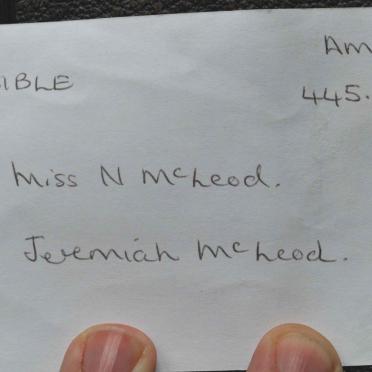 IBLE Am
445.
Miss N McLeod.
Jeremiah McLeod.